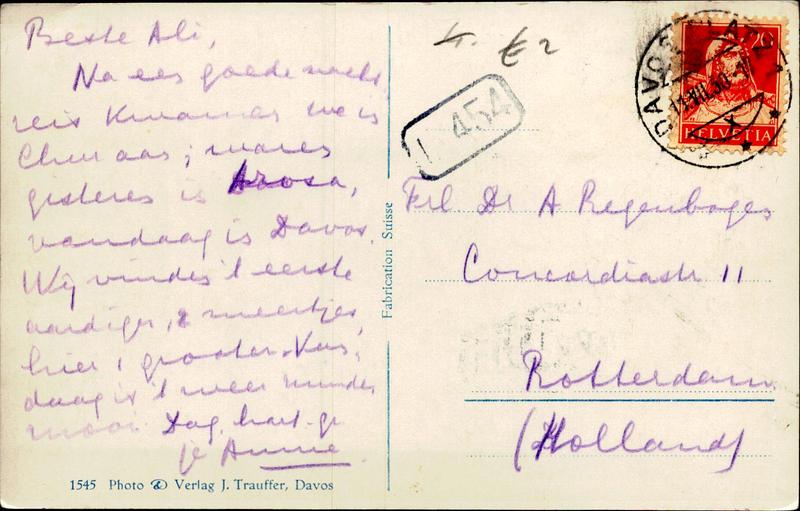 Beste Ali,
Na een goede nacht
reis kwamen we in
Chur aan; waren
gisteren in Arosa,
vandaag in Davos.
Wij vinden 't eerste
aardiger, 2 meertjes
hier, grooter. Van-
daag is 't weer minder
mooi. Dag, hart. gr.
je Annie
1545 Photo & Verlag J. Trauffer, Davos
Fabrication Suisse
£2
1454
DAVOS PLATZ
20
HELVETIA
Frl Dr A Regenbogen
Concordiastr 11
Rotterdam
(Holland)